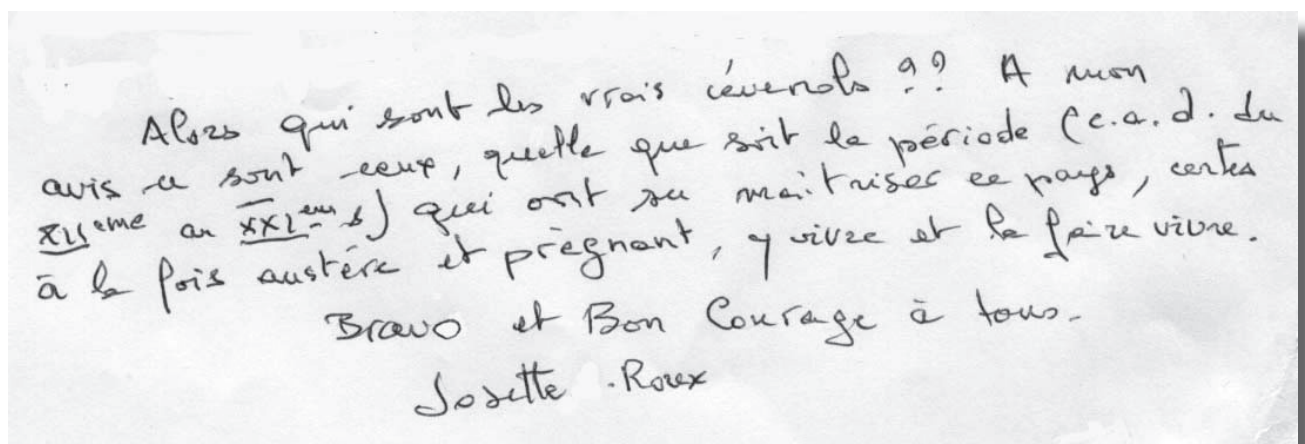 Alors qui sont les vrais cévenols ?? A mon
avis ce sont ceux, quelle que soit la période (c.a.d. du
au XXI ème s) qui ont su maîtriser ce pays, certes
à la fois austère et prégnant, y vivre et le faire vivre.
Bravo et Bon Courage à tous.
Josette Roux